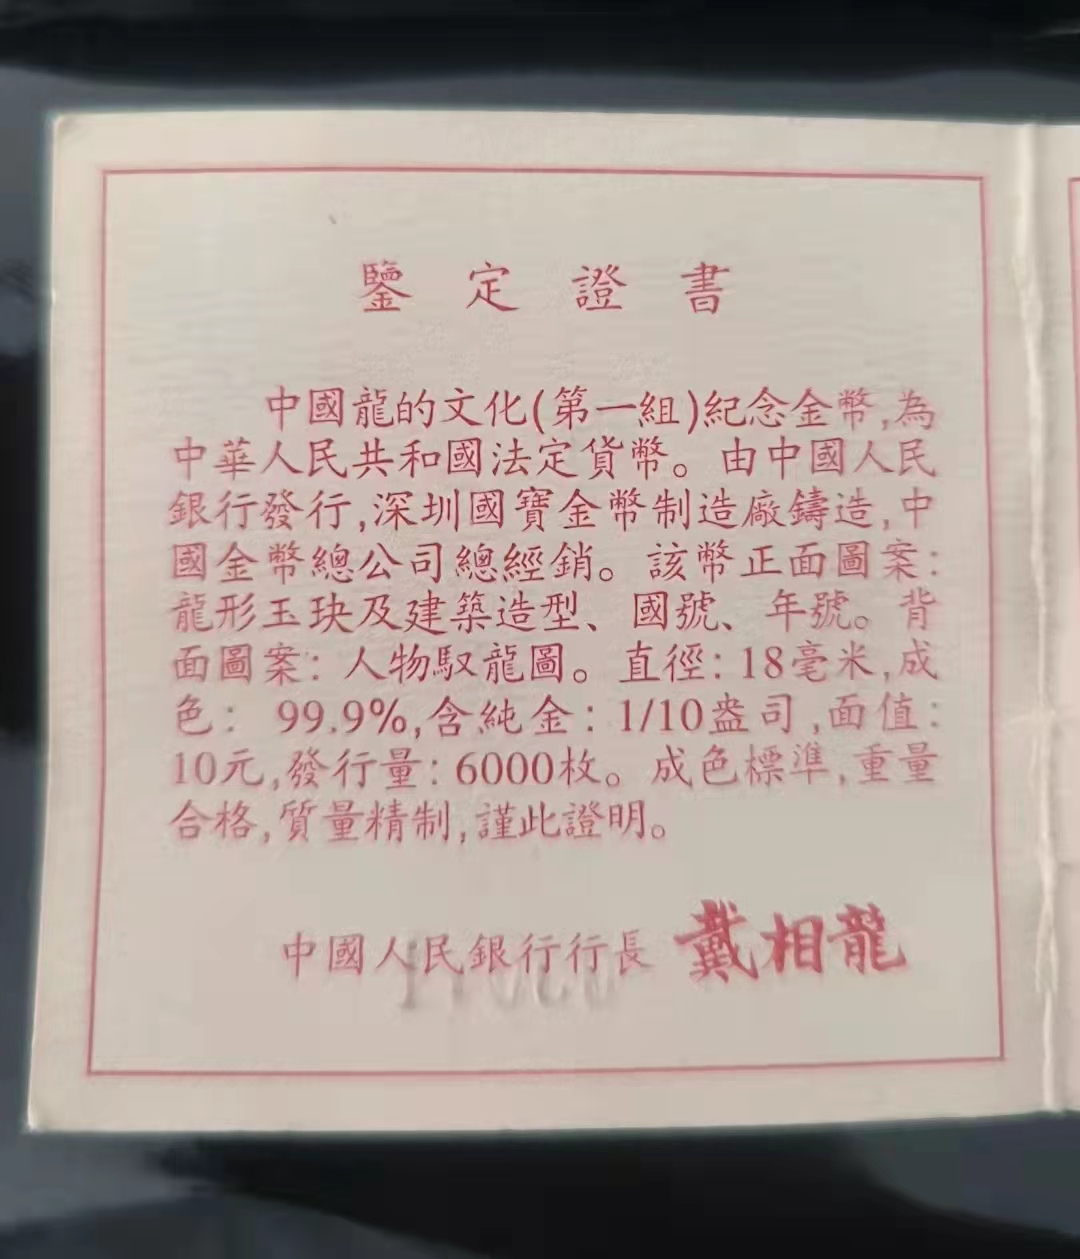 鑒定證書
中國龍的文化(第一組)紀念金幣,為
中華人民共和國法定貨幣。由中國人民
銀行發行,深圳國寶金幣制造廠鑄造,中
國金幣總公司總經銷。該幣正面圖案:
龍形玉玦及建築造型、國號、年號。背
面圖案:人物馭龍圖。直徑:18毫米,成
色:99.9%,含純金:1/10盎司,面值:
10元,發行量:6000枚。成色標準,重量
合格,質量精制,謹此證明。
中國人民銀行行長 戴相龍